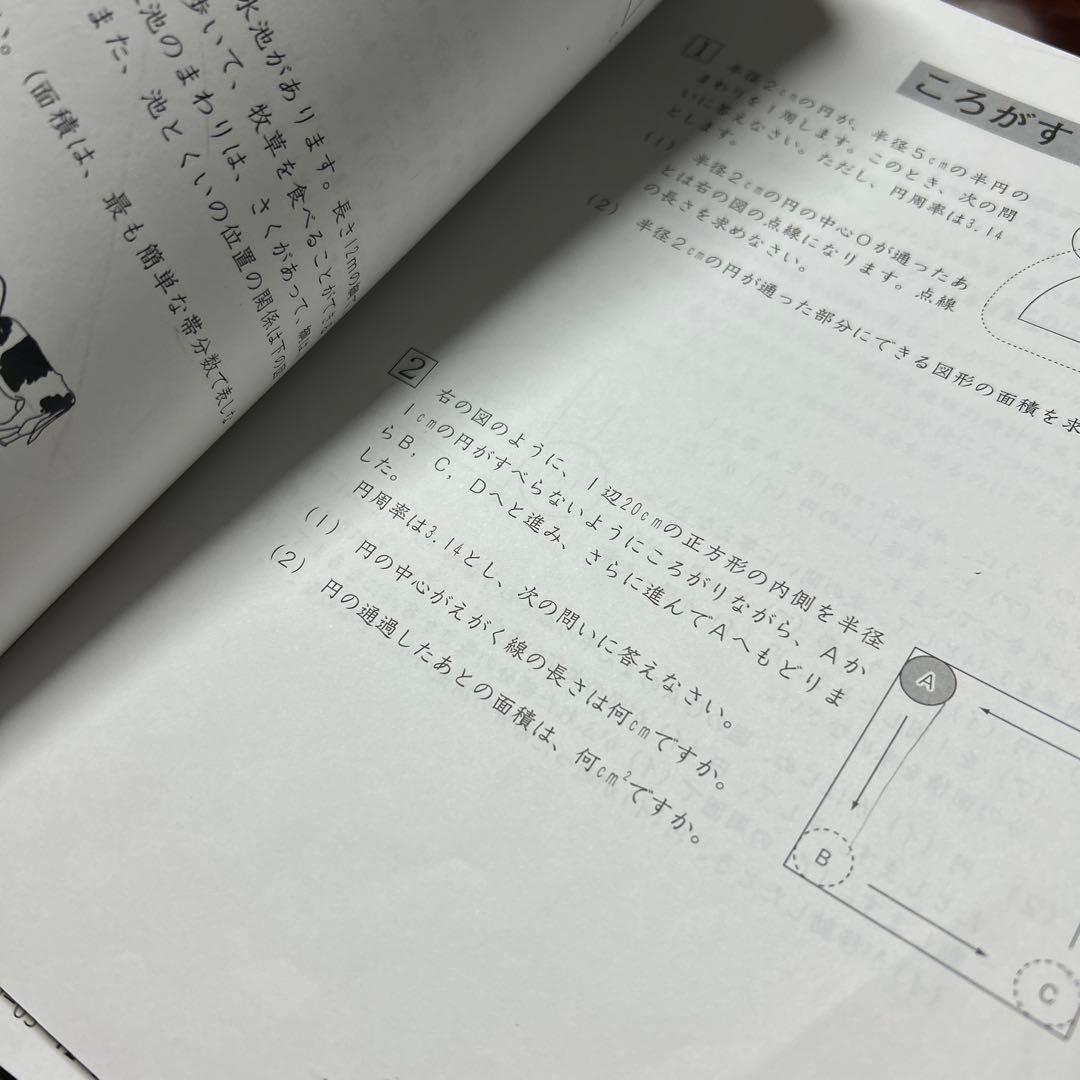 水池があります。長さ12mの
歩いて、牧草を食べることができる
池のまわりは、さくがあって、
また、池とくいの位置の関係は下の図
い。(面積は、最も簡単な帯分数で表しな
ころがす
1 半径2cmの円が、半径5cmの半円の
まわりを1周します。このとき、次の問
いに答えなさい。ただし、円周率は3.14
とします。
(1) 半径2cmの円の中心Oが通ったあ
とは右の図の点線になります。点線
の長さを求めなさい。
(2) 半径2cmの円が通った部分にできる図形の面積を求
2 右の図のように、1辺20cmの正方形の内側を半径
1cmの円がすべらないようにころがりながら、Aか
らB, C, Dへと進み、さらに進んでAへもどりま
した。
円周率は3.14とし、次の問いに答えなさい。
(1) 円の中心がえがく線の長さは何cmですか。
(2) 円の通過したあとの面積は、何cm²ですか。
A
B
C